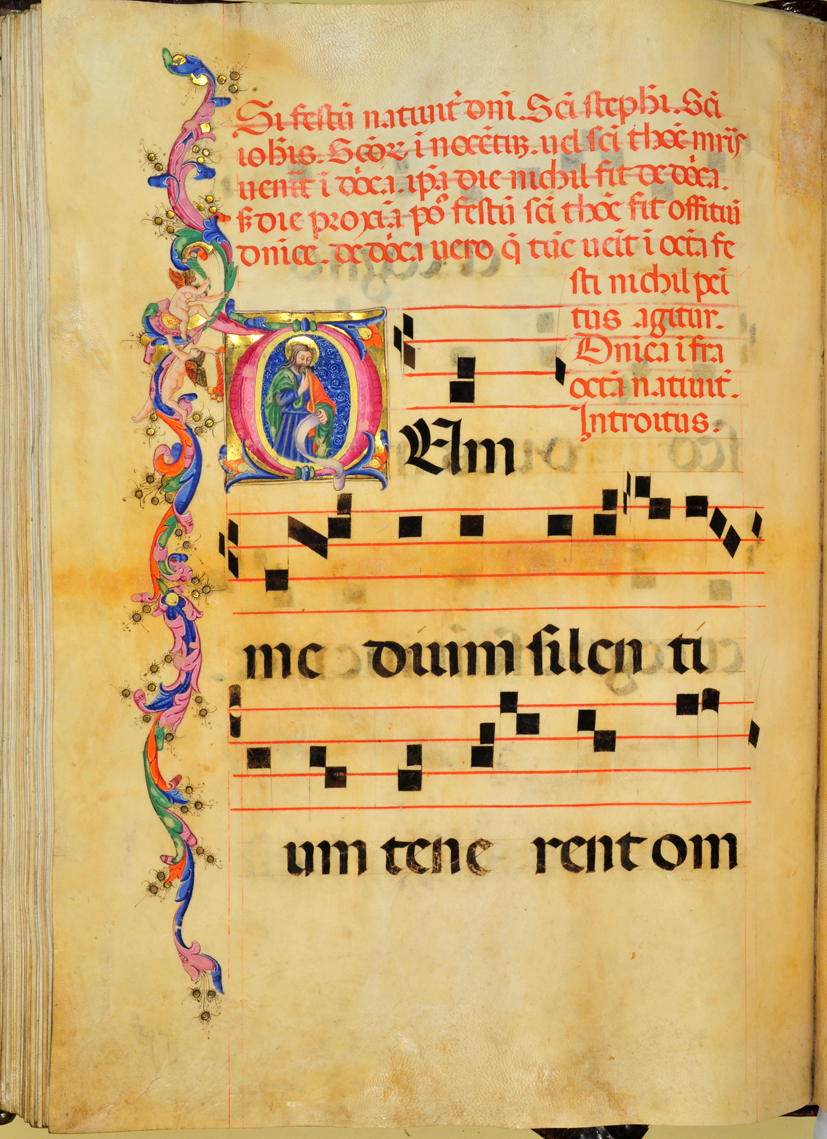 Si festū natiuit̄ dn̄i. Sc̄i steph̄i. Sc̄i
ioh̄is. Sc̄oꝝ īnocētiū. uel sc̄i thoē mr̄is
uen̄it ī dōca. ip̄a die nichil fit de dōca.
s̄ die proxīa pꝰ festū sc̄i thoē fit offitiū
dn̄ice. de dōca uero q̄ tūc ueīt ī octā fe
sti nichil peī
tus agitur.
Dn̄ica ifra
octā natiuit̄.
Introitus.
DUm
me diuum silen ti
um tene rent om